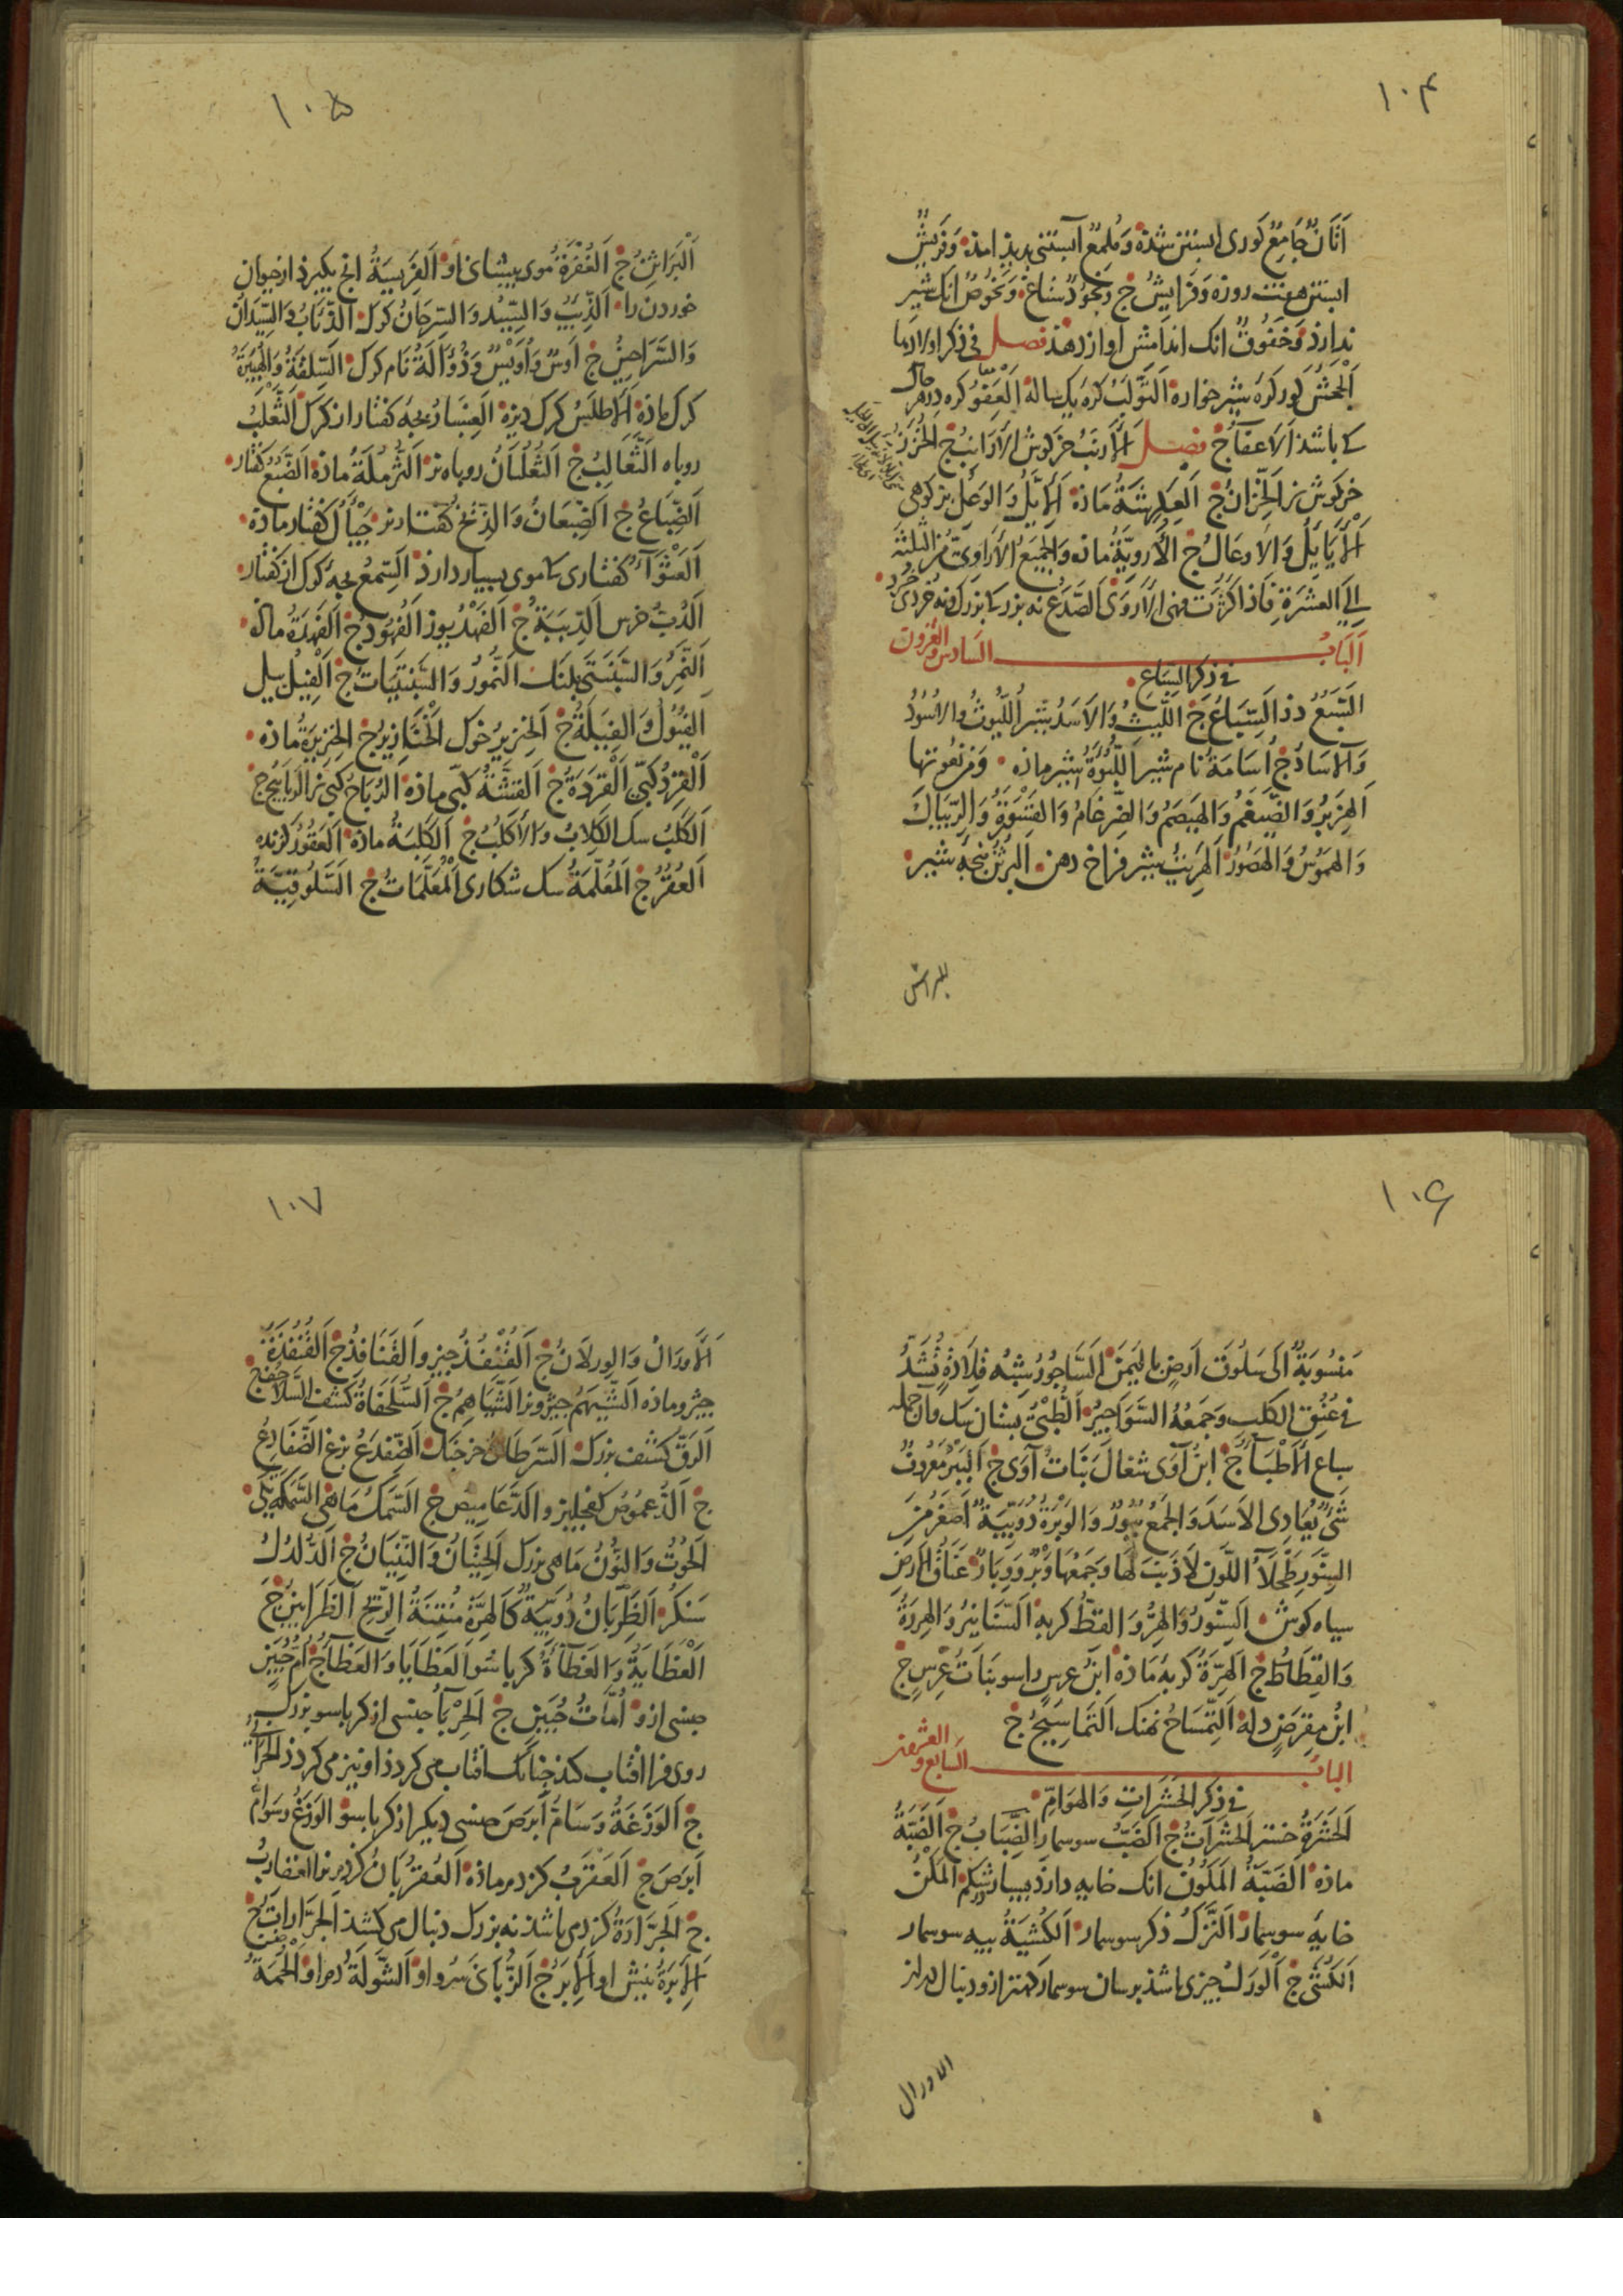 ١٠۴
اَتَانٌ جَامِعٌ کوری ابستن شده وَمُلمِعٌ آبستنی پدید امده وَفَرِیشٌ
ابستن هفت روزه وَفَرَایِشُ ج وَنَجُوْدٌ وَنَحُوْصٌ انک شیر
ندارد وَخَفُوقٌ انک اندامش اواز دهد فصل فی ذکر اولادها
اَلْجَحْشُ کورکره شیر خواره اَلتَّوْلَبُ کره یک ساله اَلْعَفْوُ کره هر حال
که باشد اَلاَعفَآءُ ج فصل اَلْاَرنَبُ خرکوش الاَرَانِبُ ج الخُزَزُ
خرکوش نر الخِزَّانُ ج اَلعِکرِشَةُ مَاده اَلاَیِّلُ وَالوَعِلُ بز کوهی
اَلْاَیَایِلُ وَالاَوعَالُ ج اَلْاُروِیَّةُ ماده وَالجَمِیعُ الاَرَاوِیُّ مِنَ الثلثة
اِلَی العشَرَةِ فَاِذَا کَثُرَت فهی الاَروَی اَلصَّدَعُ نه بزرک بزرک و نه خرد خرد
اَلبَابُ السَادِسُ وَالعِشرُونَ
فی ذکر السِّبَاعِ
السَّبُعُ دد اَلسِّبَاعُ ج اللَّیثُ وَالاَسَدُ شیر اَللُّیُوثُ وَالاُسُوْدُ
وَالآسَادُ ج اُسَامَةُ نام شیر اَللَّبُؤَةُ شیر ماده وَمِن نُعُوتها
اَلهِزَبرُ وَالضَّیغَمُ وَالهَیصَمُ وَالضِّرغَامُ وَالقَسْوَرَةُ وَالرِّیبَالُ
وَالهَمُوْسُ وَالهَصُوْرُ اَلهَرِیتُ شیر فراخ دهن البُرثُنُ پنجه شیر
البراثن
١٠۵
اَلْبَرَاثِنُ ج اَلعُفْرَةُ موی پیشانی او اَلفَرِیسَةُ انچ بکیرد از حیوان
خوردن را اَلذِّیبُ وَالسِّیْدُ وَالسِّرحَانُ کرک الذِّئَابُ وَالسِّیدَانُ
وَالسَّرَاحِینُ ج اَوسٌ وَاُوَیْسٌ وَذُؤَالَةُ نَام کرک اَلسِّلقَةُ وَالْهُبَیْرَةُ
کرک ماده اَلاَطلَسُ کرک دیزه اَلعِسبَارُ بچه کفتار از کرک اَلثَّعْلَبُ
روباه اَلثَّعَالِبُ ج اَلثُّعْلُبَانُ روباه نر اَلثُّرْمُلَةُ ماده اَلضَّبُعُ کفتار
اَلضِّبَاعُ ج اَلضِّبعَانُ وَالذِّیخُ کفتار نر جَیْأَلُ کفتار ماده
اَلعَثْوَآءُ کفتاری که موی بسیار دارد اَلسِّمعُ بچه کرک از کفتار
اَلدُّبُّ خرس اَلدِّبَبَةُ ج اَلْفَهْدُ یوز اَلْفُهُوْدُ ج اَلفَهدَةُ ماده
اَلنَّمِرُ وَالسَّبَنتَی پلنک اَلنُّمُورُ وَالسَّبَنتَیَاتُ ج اَلْفِیْلُ پیل
اَلفُیُوْلُ وَالفِیَلَةُ ج اَلخِنزِیرُ خوک اَلْخَنَازِیرُ ج الخِنزِیرَةُ ماده
اَلْقِرْدُ کپی اَلْقِرَدَةُ ج اَلقِشَّةُ کپی ماده الرُّبَاحُ کپی نر الرَّبَابِیحُ ج
اَلکَلْبُ سک اَلکِلاَبُ وَالاَکلُبُ ج اَلکَلبَةُ ماده اَلعَقُوْرُ کزنده
اَلعُقُرُ ج اَلمُعَلَّمَةُ سک شکاری اَلْمُعَلَّمَاتُ ج اَلسَّلُوقِیَّةُ
١٠۶
مَنسُوبَةٌ اِلَی سَلُوقَ اَرضٍ بِالیَمَنِ اَلسَّاجُورُ شِبْهُ قِلاَدَةٍ تُشَدُّ
فی عُنُقِ الکَلبِ وَجَمْعُهُ السَّوَاجِیرُ اَلطُّبْیُ پستان سک وآن جمله
سباع اَلاَطْبَآءُ ج ابنُ آوَی شغال بَنَاتُ آوَی ج اَلبَبْرُ مَعرُوفٌ
شَیْءٌ یُعَادِی الاَسَدَ وَالجَمْعُ بُبُورٌ وَالوَبْرَةُ دُوَیْبَّةٌ اَصغَرُ مِنَ
السِّنَّورِ طَحْلَآءُ اللَّونِ لاَ ذَنَبَ لَهَا وَجَمْعُهَا وَبْرٌ وَوِبَارٌ عَنَاقُ الاَرضِ
سیاه کوش اَلسِّنَّورُ وَالهِرُّ وَالقِطُّ کربه اَلسَّنَانِیرُ وَالهِرَرَةُ
وَالقِطَاطُ ج اَلهِرَّةُ کربه مَاده ابنُ عِرسٍ راسو بَنَاتُ عِرسٍ ج
ابنُ مِقرَضٍ دله اَلتِّمسَاحُ نهنک اَلتَّمَاسِیحُ ج
البَابُ السَابعُ والعشرون
فی ذکر الحَشَرَاتِ وَالهَوَامِّ
اَلحَشَرَةُ خستر اَلحَشَرَاتُ ج الضَبُّ سوسمار الضِّبَابُ ج اَلضَّبَّةُ
ماده اَلضَبَّةُ المَکُوْنُ انک خایه دارد بسیار در شکم اَلمَکْنُ
خایهٔ سوسمار اَلنَّزْکُ ذکر سوسمار اَلکُشْیَةُ پیه سوسمار
اَلکُشَی ج اَلْوَرَلُ چیزی باشد برسان سوسمار مهتر ازو و دنبال دراز
الاورال
١٠٧
اَلْاَورَالُ وَالوِرلاَنُ ج اَلقُنْفُذُ چیز والقَنَافِذُ ج اَلقُنفُذَةُ
چیژو ماده اَلشَّیْهَمُ چیژو نر اَلشَّیَاهِمُ ج اَلسُّلَحْفَاةُ کشف السَّلاَحِفُ ج
اَلرَّقُّ کشف بزرک اَلسَّرَطَانُ خرچنک اَلضِّفدَعُ بزغ الضَّفَادِعُ
ج اَلدُّعمُوْصُ کفچلیز والدَّعَامِیصُ ج اَلسَّمَکُ مَاهی السَّمَکَةُ یکی
اَلحُوْتُ وَالنُّوْنُ مَاهی بزرک اَلحِیتَانُ وَالنِّینَانُ ج اَلدُّلدُلُ
سَنکر اَلظَّرِبَانُ دُوَیْبَّةٌ کَالهِرَّةِ مُنْتِنَةُ الرِّیحِ اَلظَّرَابِینُ ج
اَلْعَظَایَةُ وَالعَظَآءَةُ کرباسُو اَلعَظَایَا وَالعَظَآءُ ج اُمُّ حُبَیْنٍ
جنسی ازو اُمَّاتُ حُبَینٍ ج اَلحِرْبَآءُ جنسی از کرباسو بزرک
روی فرا افتاب کند چنانک افتاب می کردد او نیز می کردد الحَرَابِیُّ
ج اَلوَزَغَةُ وَسَامُّ اَبرَصَ جنسی دیکر از کرباسو الوَزَغُ وَسَوَامُّ
اَبرَصَ ج اَلعَقرَبُ کزدم ماده اَلعُقرُبَانُ کزدم نر العقاربُ
ج اَلجَرَّارَةُ کزدمی باشد نه بزرک دنبال می کشد اَلجَرَّارَاتُ ج
اَلاِبرَةُ نیش او اَلاِبَرُ ج اَلزُّبَانَی سُرو او اَلشَّولَةُ دم او اَلْحُمَةُ